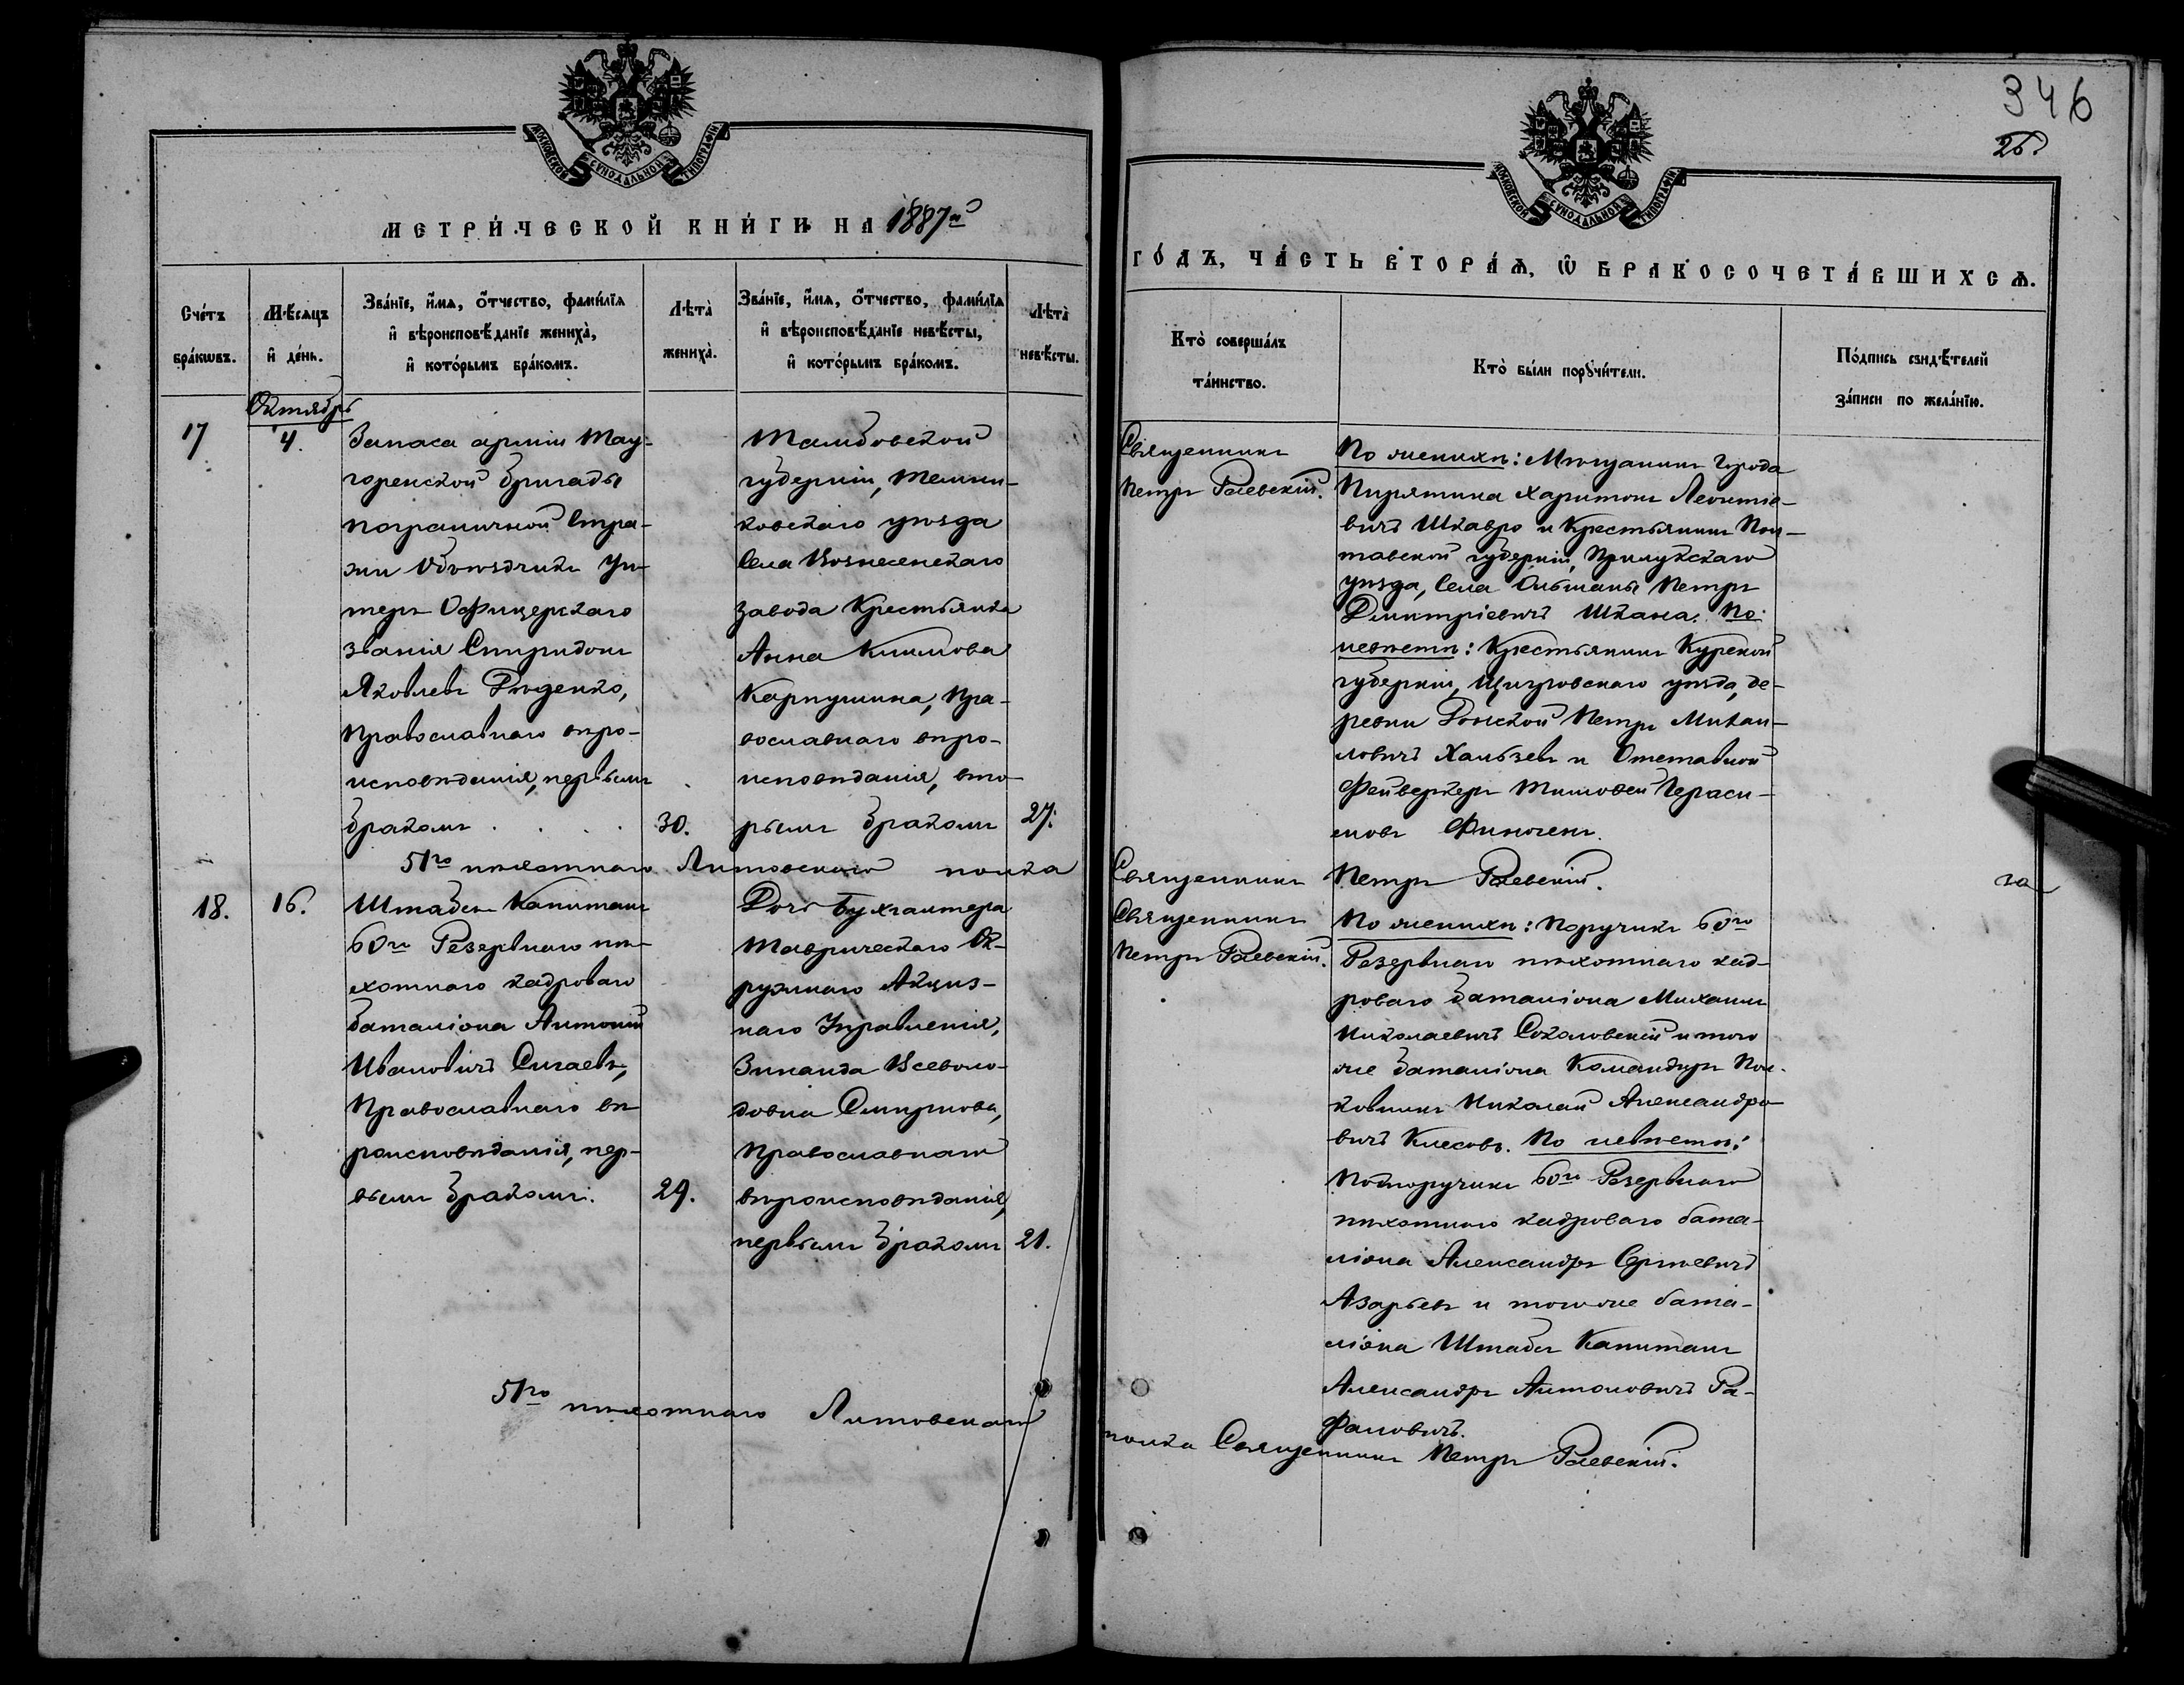 346
26
МОСКОВСКОЙ СѴНОДАЛЬНОЙ ТИПОГРАФІИ
МЕТРИ́ЧЕСКОЙ КНИ́ГИ НА 1887й
Сче́тъ бра́кѡвъ.
Мѣ́сяцъ и҆ де́нь.
Зва́нїе, и҆́мѧ, ѻ҆́тчество, фами́лїѧ
и҆ вѣроисповѣ́данїе жениха̀,
и҆ кото́рымъ бра́комъ.
Лѣта̀ жениха̀.
Зва́нїе, и҆́мѧ, ѻ҆́тчество, фами́лїѧ
и҆ вѣроисповѣ́данїе невѣ́сты,
и҆ кото́рымъ бра́комъ.
Лѣта̀ невѣ́сты.
Октябрь
17
4.
Запаса арміи Тау-
горенской бригады
пограничной Стра-
жи Объѣздчикъ Ун-
теръ Офицерскаго
званія Спиридонъ
Яковлевъ Рѣденко,
Православнаго вѣро-
исповѣданія, первымъ
бракомъ
30.
Тамбовской
губерніи, Темни-
ковскаго уѣзда
Села Вознесенскаго
завода Крестьянка
Анна Климова
Карпушина, Пра-
вославнаго вѣро-
исповѣданія, вто-
рымъ бракомъ
27.
51го пѣхотнаго Литовскаго полка
18.
16.
Штабсъ Капитанъ
60го Резервнаго пѣ-
хотнаго кадроваго
баталіона Антоній
Ивановичъ Сигаевъ,
Православнаго вѣ-
роисповѣданія, пер-
вымъ бракомъ.
29.
Дочь Бухгалтера
Таврическаго Ок-
ружнаго Акциз-
наго Управленія,
Зинаида Всеволо-
довна Смирнова,
Православнаго
вѣроисповѣданія,
первымъ бракомъ
21.
51го пѣхотнаго Литовскаго
МОСКОВСКОЙ СѴНОДАЛЬНОЙ ТИПОГРАФІИ
ГО́ДЪ, ЧА́СТЬ ВТОРА́Ѧ, Ѡ҆ БРАКОСОЧЕТА́ВШИХСѦ.
Кто̀ соверша́лъ
та́инство.
Кто̀ бы́ли порꙋчи́тели.
По́дпись свидѣ́телей
за́писи по жела́нїю.
Священникъ
Петръ Раевскій.
По женихѣ: Мѣщанинъ Города
Пирятина Харитонъ Леонтіе-
вичъ Шкавро и Крестьянинъ Пол-
тавской губерніи, Прилукскаго
уѣзда, Села Ольшаны Петръ
Дмитріевичъ Шкана. По
невѣстѣ: Крестьянинъ Курской
губерніи, Щигровскаго уѣзда, де-
ревни Донской Петръ Михаи-
ловичъ Халѣзевъ и Отставной
Фейверкеръ Тимофей Гераси-
мовъ
Священникъ Петръ Раевскій.
Священникъ
Петръ Раевскій.
По женихѣ: Поручикъ 60го
Резервнаго пѣхотнаго кад-
роваго баталіона Михаилъ
Николаевичъ Соколовскій и того
же баталіона Командиръ Пол-
ковникъ Николай Александро-
вичъ Клесовъ. По невѣстѣ:
Подпоручикъ 60го Резервнаго
пѣхотнаго кадроваго бата-
ліона Александръ Сергѣевичъ
Азарьевъ и того же бата-
ліона Штабсъ Капитанъ
Александръ Антоновичъ Ра-
фаловичъ.
полка Священникъ Петръ Раевскій.